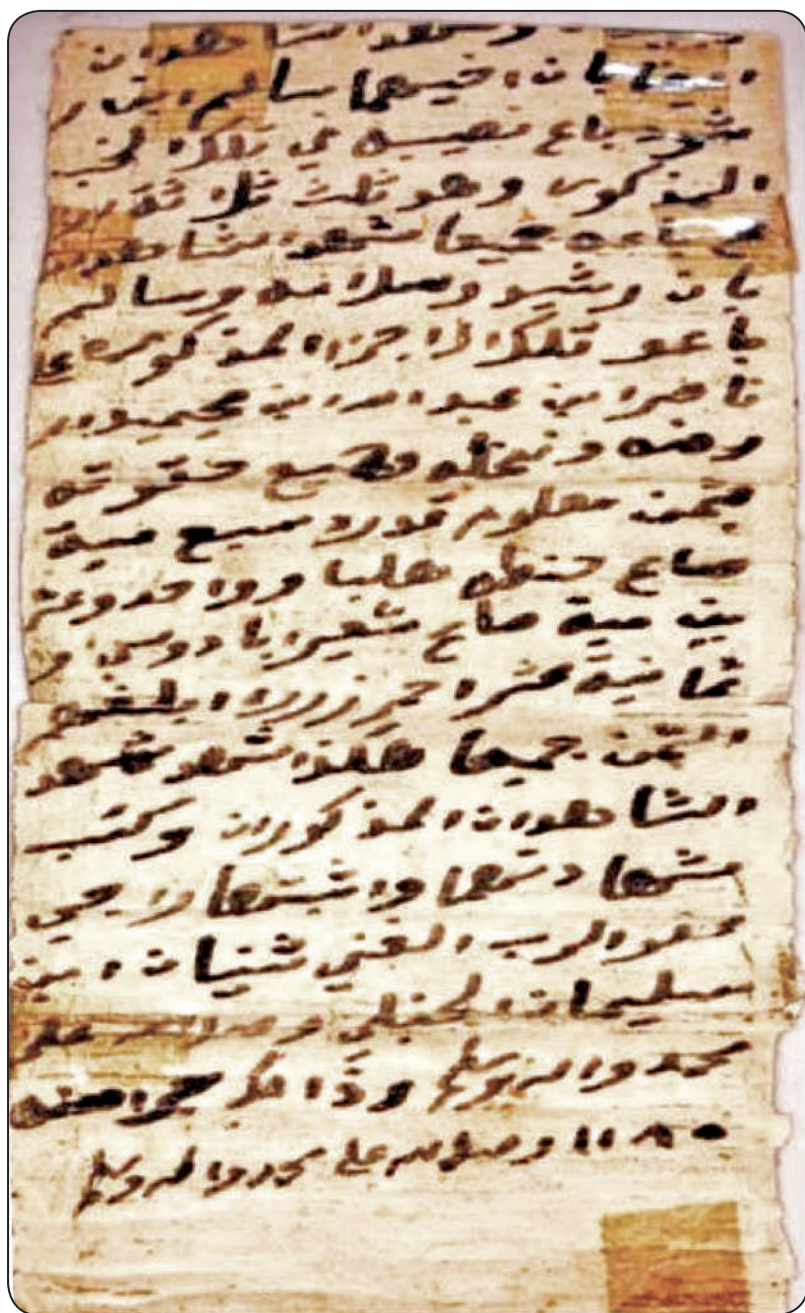 وشهد الشاهدان
ايضا بان اخيهما سالم ابن ر
شود باع نصيبه في تلك الخب
المذكور وهو ثلث ثلاثة
جميعا شهد الشاهدان
بان رشيد وسلامه وسالم
باعو تلك الاجزاء المذكوره ع
ناصر ابن عبدالله ابن حميد ار
رضه ونخله وجميع حقوقه
بثمن معلوم قدره سبع مية
صاع حنطه هلبا وواحد وعشر
ين مية صاع شعير بادوس و
ثمانية عشر احمر زرر ابلغهم
الثمن جميعا هكذا شهد شهد
الشاهدان المذكوران وكتب
شهادتهما واثبتها راجي
عفو الرب الغني ثنيان ابن
سليمان الحنبلي وصلى الله على
محمد واله وسلم وذالك جرا سنه
١١٨٠ وصلى الله على محمد واله وسلم